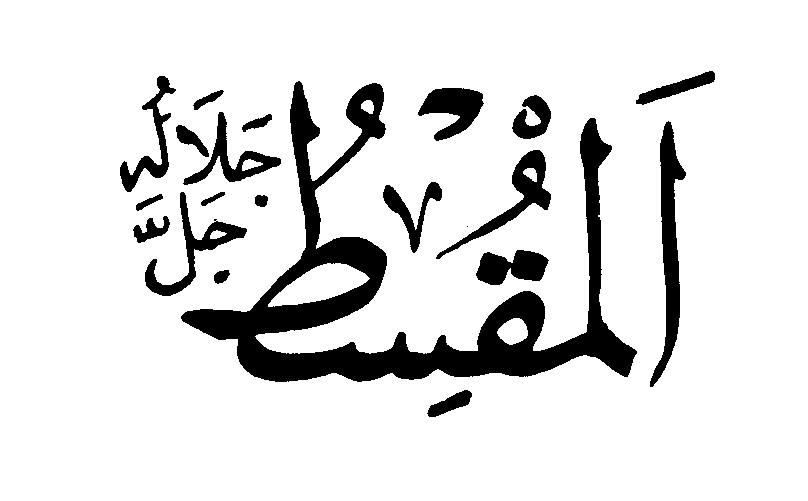 اَلْمُقْسِطُ
جَلَّ جَلَالُهُ